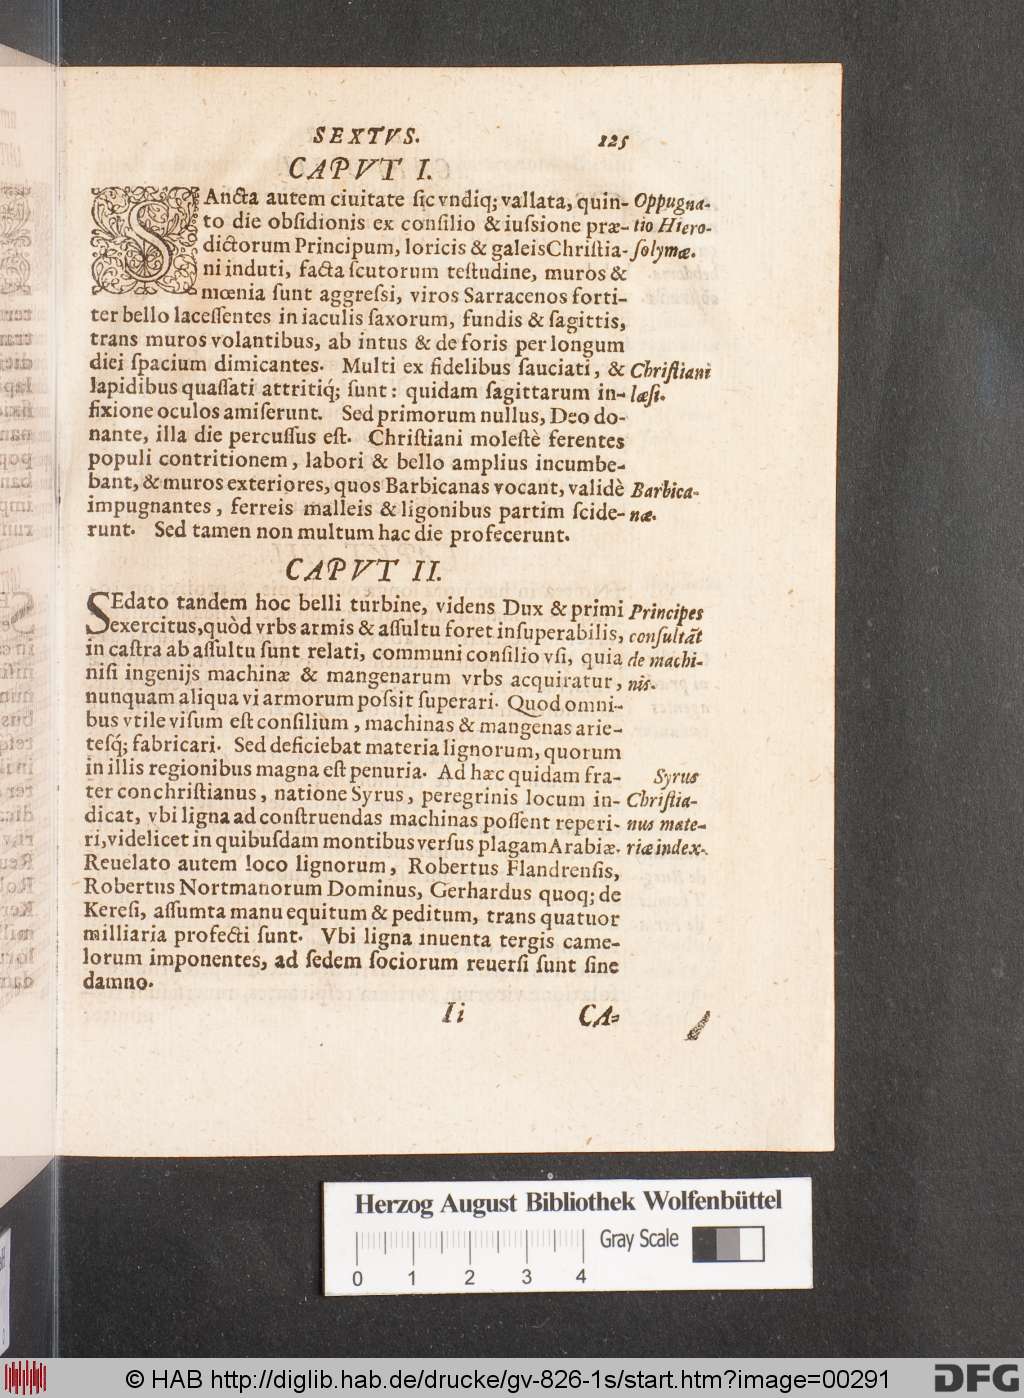 SEXTVS. 125
CAPVT I.
SAncta autem ciuitate sic vndiq; vallata, quin-
to die obsidionis ex consilio & iussione præ-
dictorum Principum, loricis & galeis Christia-
ni induti, facta scutorum testudine, muros &
mœnia sunt aggressi, viros Sarracenos forti-
ter bello lacessentes in iaculis saxorum, fundis & sagittis,
trans muros volantibus, ab intus & de foris per longum
diei spacium dimicantes. Multi ex fidelibus sauciati, &
lapidibus quassati attritiq́; sunt: quidam sagittarum in-
fixione oculos amiserunt. Sed primorum nullus, Deo do-
nante, illa die percussus est. Christiani molestè ferentes
populi contritionem, labori & bello amplius incumbe-
bant, & muros exteriores, quos Barbicanas vocant, validè
impugnantes, ferreis malleis & ligonibus partim scide-
runt. Sed tamen non multum hac die profecerunt.
Oppugna-
tio Hiero-
solymæ.
Christiani
læsi.
Barbica-
næ.
CAPVT II.
SEdato tandem hoc belli turbine, videns Dux & primi
exercitus, quòd vrbs armis & assultu foret insuperabilis,
in castra ab assultu sunt relati, communi consilio vsi, quia
nisi ingenijs machinæ & mangenarum vrbs acquiratur,
nunquam aliqua vi armorum possit superari. Quod omni-
bus vtile visum est consilium, machinas & mangenas arie-
tesq́; fabricari. Sed deficiebat materia lignorum, quorum
in illis regionibus magna est penuria. Ad hæc quidam fra-
ter conchristianus, natione Syrus, peregrinis locum in-
dicat, vbi ligna ad construendas machinas possent reperi-
ri, videlicet in quibusdam montibus versus plagam Arabiæ.
Reuelato autem loco lignorum, Robertus Flandrensis,
Robertus Nortmanorum Dominus, Gerhardus quoq; de
Keresi, assumta manu equitum & peditum, trans quatuor
milliaria profecti sunt. Vbi ligna inuenta tergis came-
lorum imponentes, ad sedem sociorum reuersi sunt sine
damno.
Principes
consultāt
de machi-
nis.
Syrus
Christia-
nus mate-
riæ index.
Ii CA-
Herzog August Bibliothek Wolfenbüttel
Gray Scale
0 1 2 3 4
© HAB http://diglib.hab.de/drucke/gv-826-1s/start.htm?image=00291
DFG